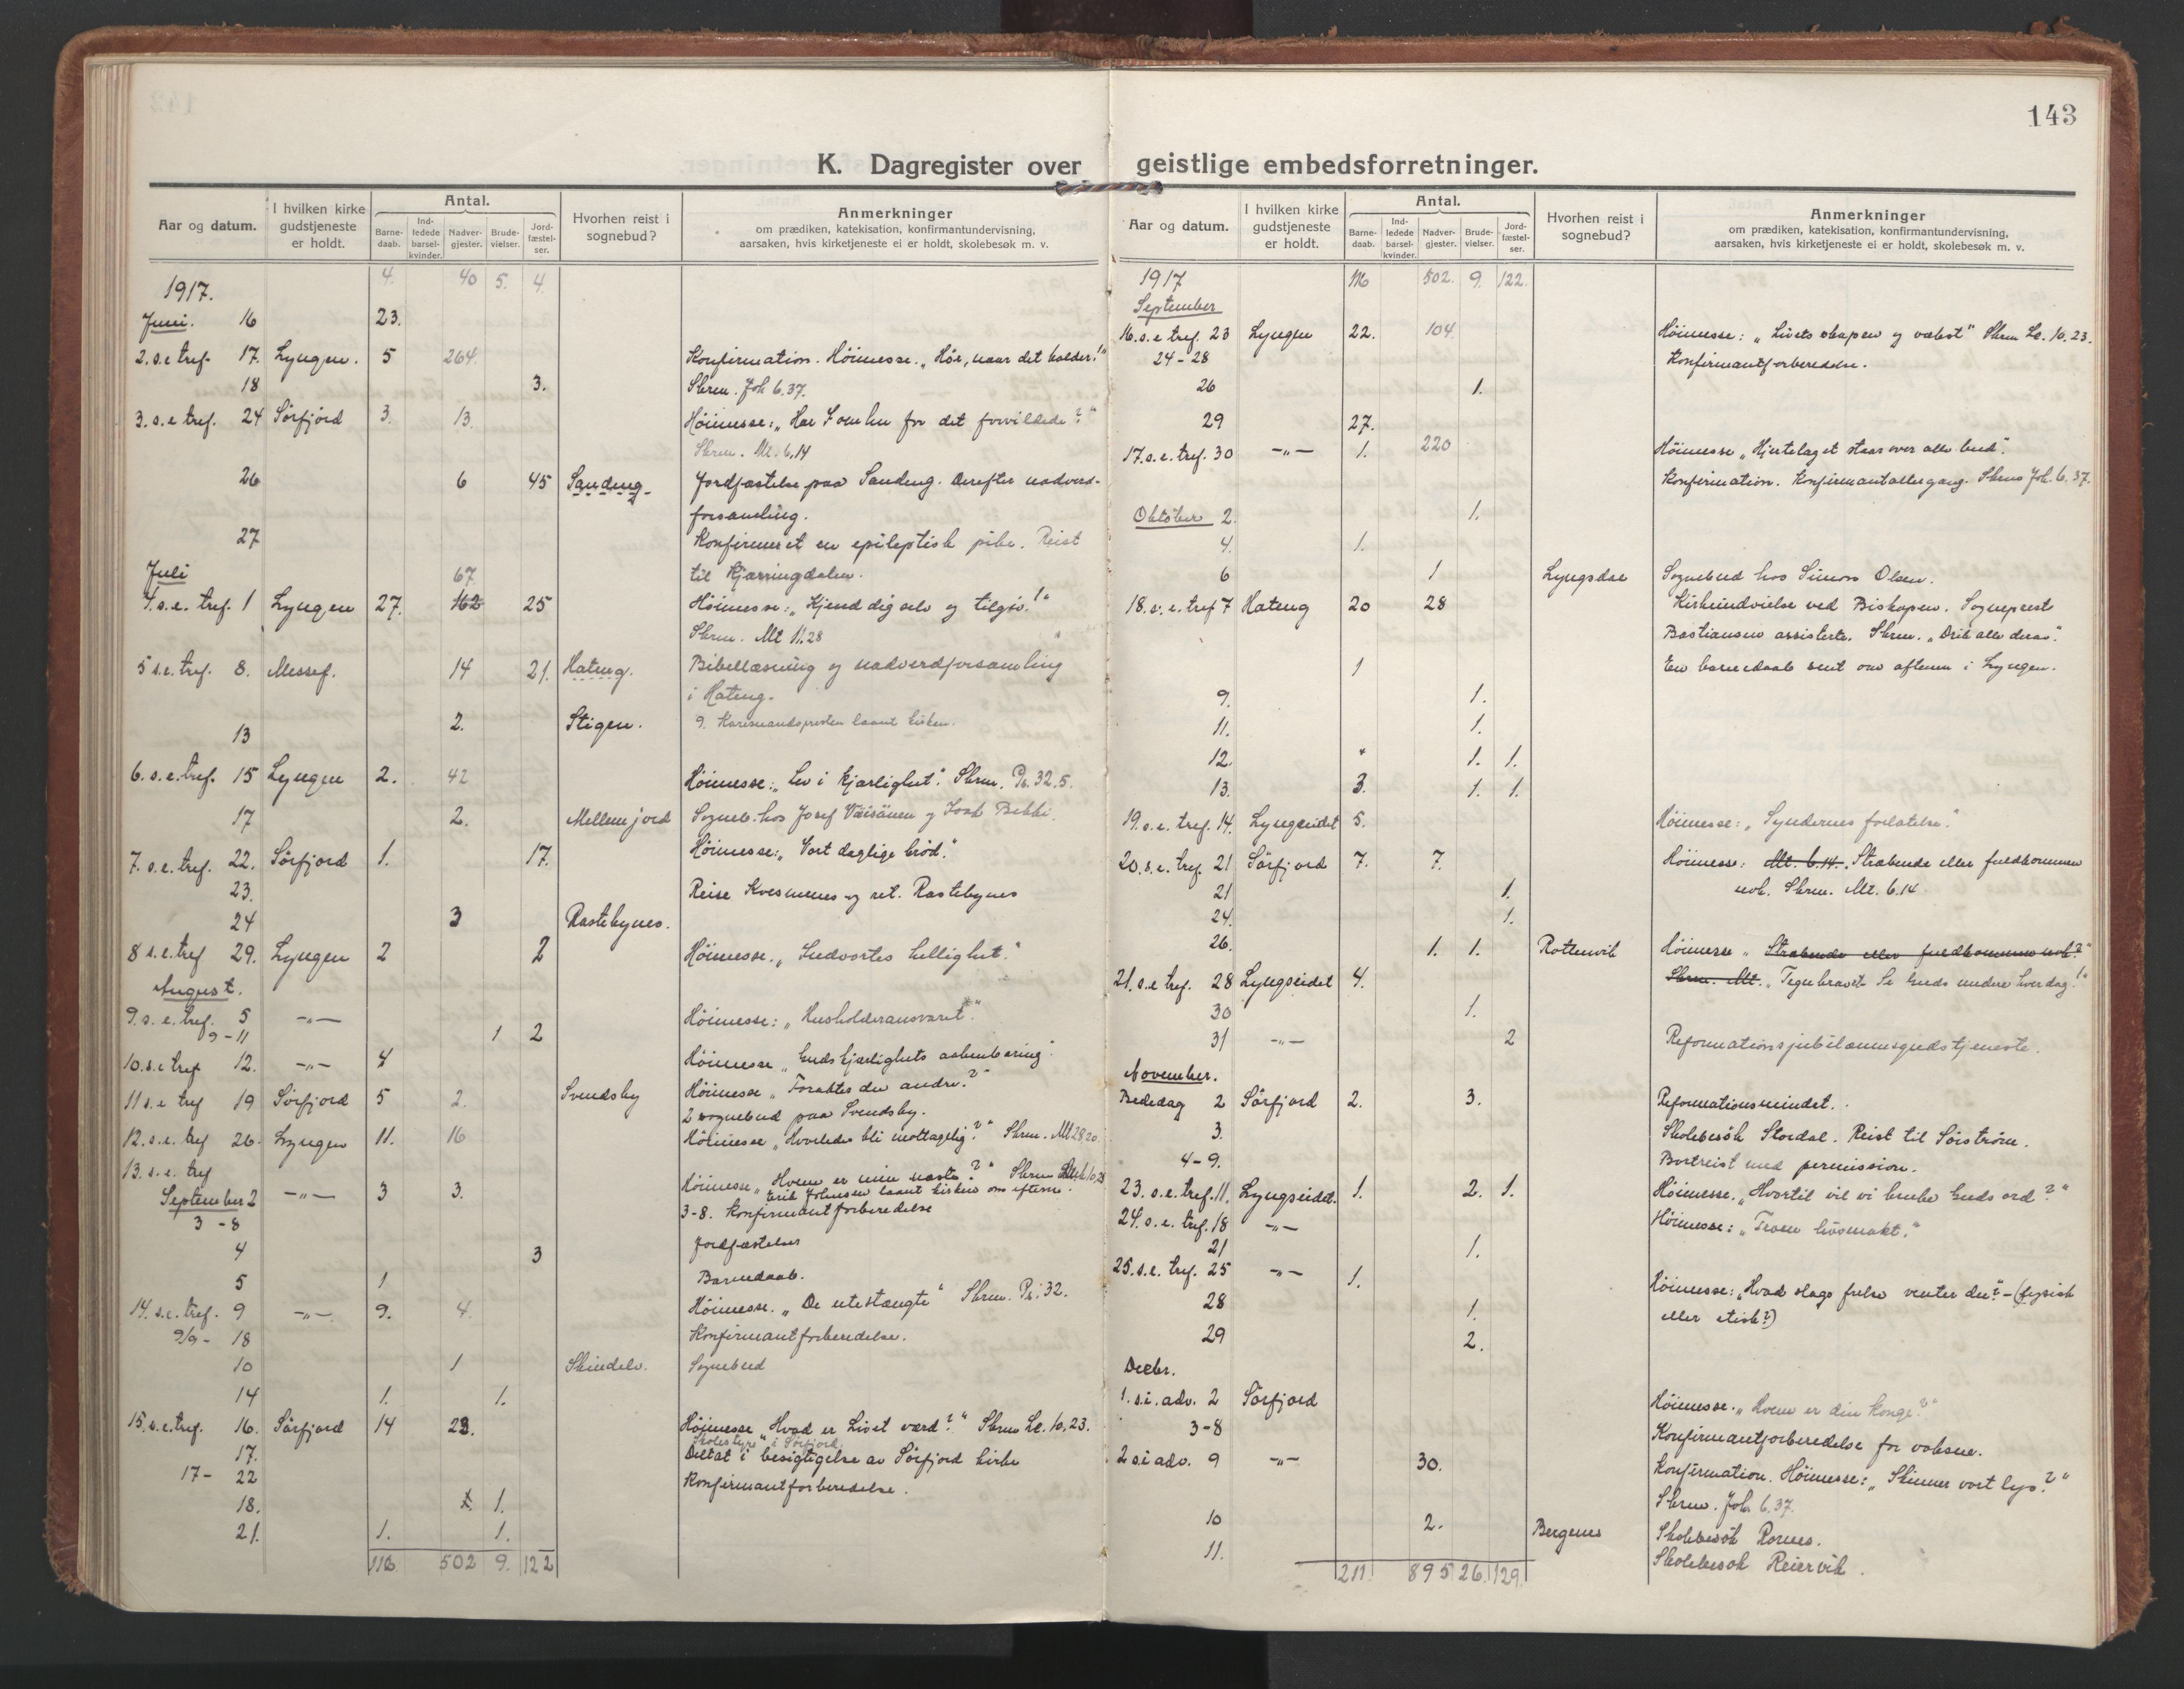 143
K. Dagregister over geistlige embedsforretninger.
Aar og datum. I hvilken kirke gudstjeneste er holdt. Antal. Barnedaab. Indledede barselkvinder. Nadvergjester. Brudevielser. Jordfæstelser. Hvorhen reist i sognebud? Anmerkninger om prædiken, katekisation, konfirmantundervisning, aarsaken, hvis kirketjeneste ei er holdt, skolebesøk m. v.
1917. 4. 40 5. 4.
Juni. 16 23.
2. s. e tref. 17. Lyngen. 5 264. Konfirmation. Höimesse. „Hör, naar det kalder!"
18 3. Skrm. Joh 6.37.
3. s. e tref. 24 Sörfjord 3. 13. Höimesse: „Har I omhu for det forvildede?"
Skrm. Mt. 6,14
26 6 45 Sandeng. Jordfæstelse paa Sandeng. Derefter nadverd-
forsamling.
27 Konfirmeret en epileptisk pike. Reist
Juli 67. til Kjærringdalen.
4. s. e. tref. 1 Lyngen 27. 162 25 Höimesse: „Kjend dig selv og tilgiv!"
Skrm. Mt 11.28
5 s. e. tref. 8. Messef. 14 21. Hateng. Bibellæsning og nadverdforsamling
i Hateng.
2. Stigen. 9. Karesuandopresten laant kirken.
13
6. s. e. tref. 15 Lyngen 2. 42 Höimesse: „Lev i kjærlighet". Skrm. Ps. 32.5.
17 2. Mellemjord Sogneb. hos Josef Väisänen og Isak Bekki.
7. s. e. tref. 22. Sörfjord 1. 17. Höimesse: „Vort daglige bröd."
23. Reise Kvesmenes og ret. Rastebynes
24 3 Rastebynes.
8 s. e. tref 29. Lyngen 2 2 Höimesse. „Indvortes hellighet."
August.
9. s. e. tref. 5 -"- Höimesse: „Husholderansvaret."
9-11 1 2
10. s. e tref 12. -"- 4 Höimesse „Guds kjærlighets aabenbaring".
11 s. e tref 19 Sörfjord 5 2. Svendsby Höimesse „Foraktes du andre?"
2 sognebud paa Svendsby.
12. s. e. tref 26. Lyngen 11. 16 Höimesse „Hvorledes bli mottagelig?" Skrm. Mt 28 20
13. s. e. tref
September 2 -"- 3 3. Höimesse „Hvem er min næste?" Skrm Luk. 10,23
Erik Johnsen laant kirken om efterm.
3-8 3-8. Konfirmantforberedelse
4 3 Jordfæstelser
5 1 Barnedaab.
14. s. e. tref. 9 -"- 9. 4. Höimesse. „De utestængte" Skrm. Ps. 32.
9/9 - 18 Konfirmantforberedelse.
10 1 Skindelv. Sognebud
14 1. 1.
15. s. e. tref. 16. Sörfjord 14 23. Höimesse „Hvad er Livet værd?" Skrm Lc. 10,23.
Skolestyre i Sörfjord.
17. Deltat i besigtigelse av Sörfjord kirke
17 - 22 Konfirmantforberedelse.
18. 1.
21. 1. 1.
116 502 9. 122
Aar og datum. I hvilken kirke gudstjeneste er holdt. Antal. Barnedaab. Indledede barselkvinder. Nadvergjester. Brudevielser. Jordfæstelser. Hvorhen reist i sognebud? Anmerkninger om prædiken, katekisation, konfirmantundervisning, aarsaken, hvis kirketjeneste ei er holdt, skolebesøk m. v.
1917 116 502. 9. 122.
September
16. s. e tref. 23 Lyngen 22. 104 Höimesse: „Livets skapen og vækst" Skrm Lc. 10.23.
24 - 28 Konfirmantforberedelse.
26 1.
29 27.
17. s. e. tref. 30 -"- 1. 220 Höimesse „Hjertelaget staar over alle bud".
Konfirmation. Konfirmantaltergang. Skrm Joh. 6.37.
Oktober 2. 1.
4. 1.
6 1 Lyngsdal Sognebud hos Simon Olsen.
18. s. e. tref 7 Hateng 20 28 Kirkeindvielse ved Biskopen. Sogneprest
Bastiansen assisterte. Skrm. „Drik alle derav".
1 En barnedaab sent om aftenen i Lyngen.
9. 1.
11. 1.
12. 1. 1.
13. 3. 1. 1.
19. s. e. tref. 14. Lyngseidet 5. Höimesse: „Syndernes forlatelse."
20. s. e. tref. 21 Sörfjord 7. 7. Höimesse: Mt. 6.14. Stræbende eller fuldkommen
21 1. nok. Skrm. Mt. 6.14
24. 1.
26. 1. 1. Rottenvik Höimesse „Stræbende eller fuldkommen nok?"
21. s. e tref. 28 Lyngseidet 4. Skrm. Mt. „Tegnkravet. Se Guds undere hver dag!"
30 1.
31 -"- 2 Reformationsjubilæumsgudstjeneste.
November.
Bededag 2 Sörfjord 2. 3. Reformationsmindet.
3. Skolebesök Stordal. Reist til Soiström.
4-9. Bortreist med permission.
23. s. e. tref. 11. Lyngseidet. 1. 2. 1. Höimesse. „Hvortil vil vi bruke Guds ord?"
24. s. e. tref. 18 -"- Höimesse: „Troens livsmakt."
21 1.
25. s. e. tref. 25 -"- 1. Höimesse: „Hvad slags frelse venter du?" - (fysisk
28 1. eller etisk?)
29 2.
Decbr.
1. s. i. adv. 2 Sörfjord Höimesse. „Hvem er din konge?"
3-8 Konfirmantforberedelse for voksne.
2 s. i adv. 9 -"- 30. Konfirmation. Höimesse: „Skinner vort lys?"
Skrm. Joh. 6.37.
10 2. Bergenes Skolebesök Pornes.
11. Skolebesök Reiervik.
211. 895 26. 129.